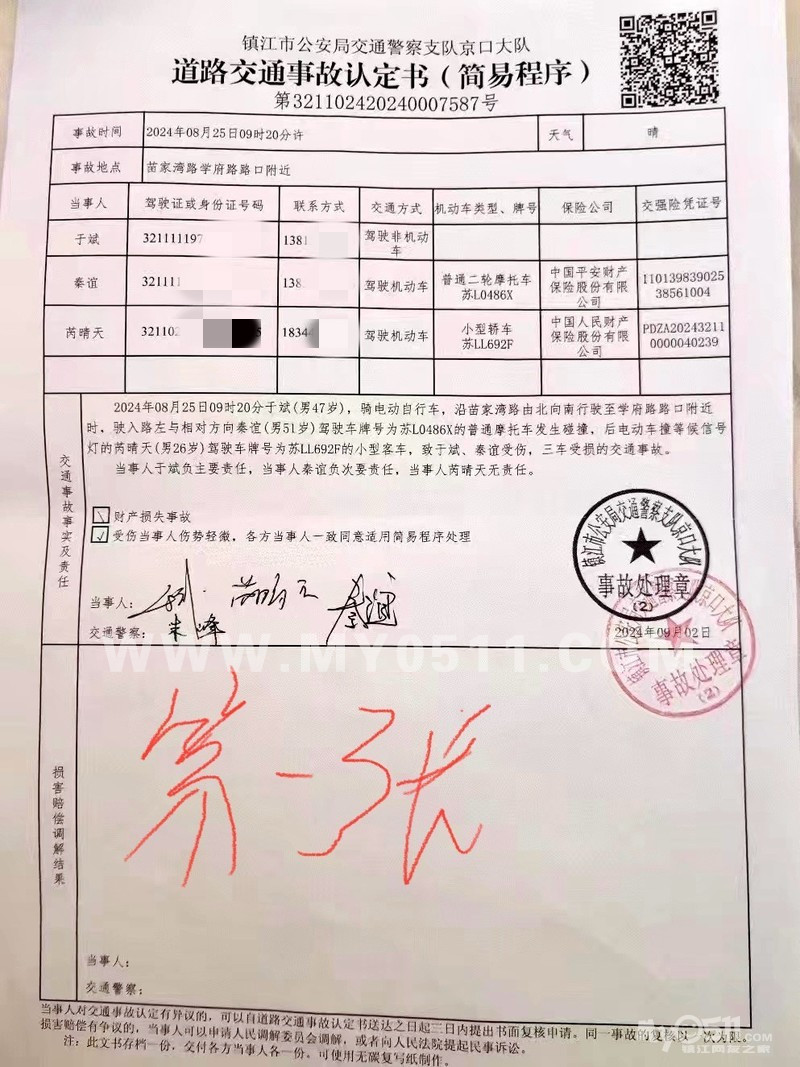 镇江市公安局交通警察支队京口大队
道路交通事故认定书（简易程序）
第321102420240007587号
事故时间 2024年08月25日09时20分许 天气 晴
事故地点 苗家湾路学府路路口附近
当事人 驾驶证或身份证号码 联系方式 交通方式 机动车类型、牌号 保险公司 交强险凭证号
于斌 321111197 1381 驾驶非机动车
秦谊 32111 138 驾驶机动车 普通二轮摩托车 苏L0486X 中国平安财产保险股份有限公司 11013983902538561004
芮晴天 32110 1834 驾驶机动车 小型轿车 苏LL692F 中国人民财产保险股份有限公司 PDZA202432110000040239
交通事故事实及责任
2024年08月25日09时20分于斌(男47岁)，骑电动自行车，沿苗家湾路由北向南行驶至学府路路口附近
时，驶入路左与相对方向秦谊(男51岁)驾驶车牌号为苏L0486X的普通摩托车发生碰撞，后电动车撞等候信号
灯的芮晴天(男26岁)驾驶车牌号为苏LL692F的小型客车，致于斌、秦谊受伤，三车受损的交通事故。
当事人于斌负主要责任，当事人秦谊负次要责任，当事人芮晴天无责任。
财产损失事故
√ 受伤当事人伤势轻微，各方当事人一致同意适用简易程序处理
当事人：
交通警察： 朱峰
镇江市公安局交通警察支队京口大队
事故处理章
(2)
2024年09月02日
事故处理章
(2)
WWW.MY0511.COM
损害赔偿调解结果
第一张
当事人：
交通警察：
当事人对交通事故认定有异议的，可以自道路交通事故认定书送达之日起三日内提出书面复核申请。同一事故的复核以一次为限。
损害赔偿有争议的，当事人可以申请人民调解委员会调解，或者向人民法院提起民事诉讼。
注：此文书存档一份，交付各方当事人各一份。可使用无碳复写纸制作。
镇江网友之家